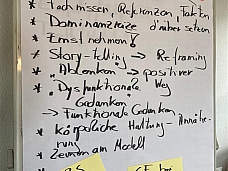 * Fachwissen, Referenzen, Fakten
* Dominanzreize d' näher setzen
* Ernst nehmen!
* Story-telling → Reframing
* "Ablenken" → positiver
* "Dysfunktionale" Weg
Gedanken"
→ Funktionale Gedanken
* körperliche Haltung - Annähe-
rung
* Zeunen am Modell